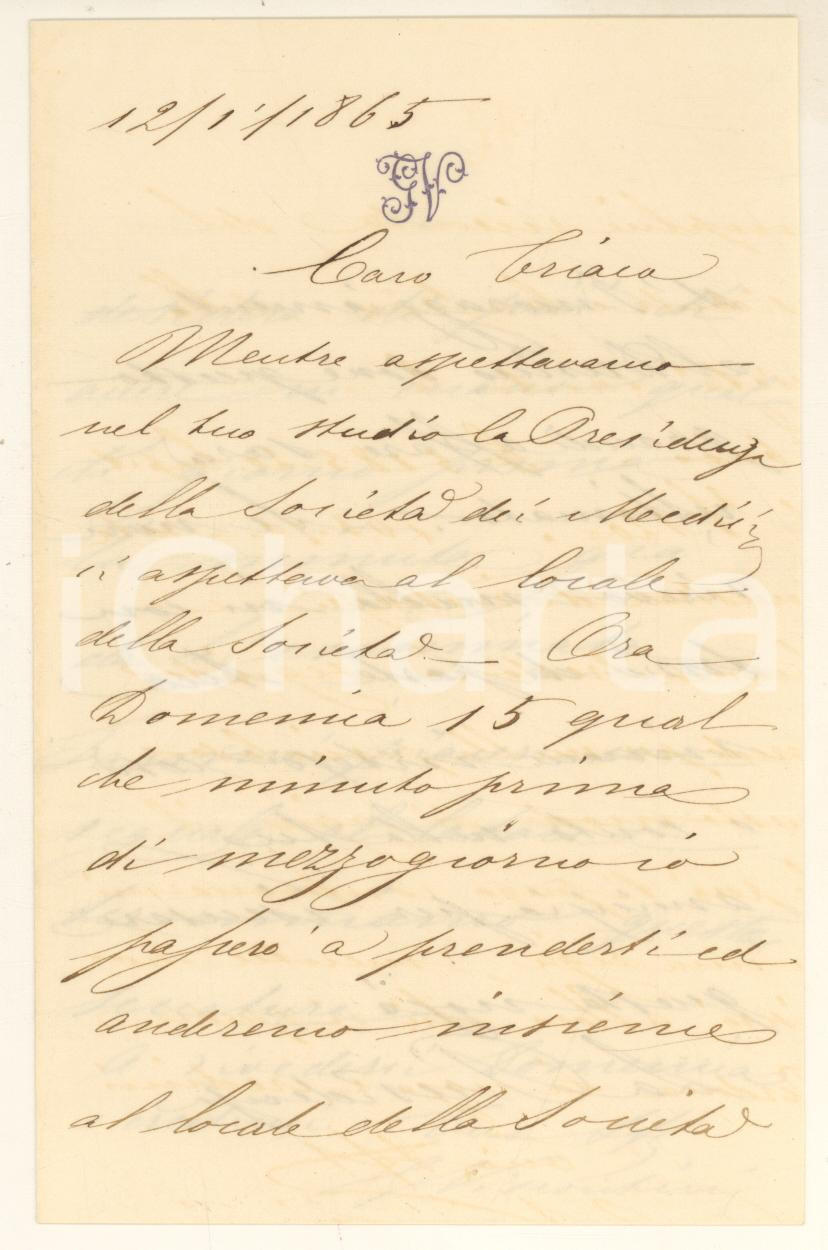 12/1/1865
GV
Caro Triaca
Mentre aspettavamo
nel tuo studio la Presidenza
della Società dei Medici,
ci aspettava al locale
della Società — Ora
Domenica 15 qual
che minuto prima
di mezzogiorno io
passerò a prenderti ed
anderemo insieme
al locale della Società
iCharta